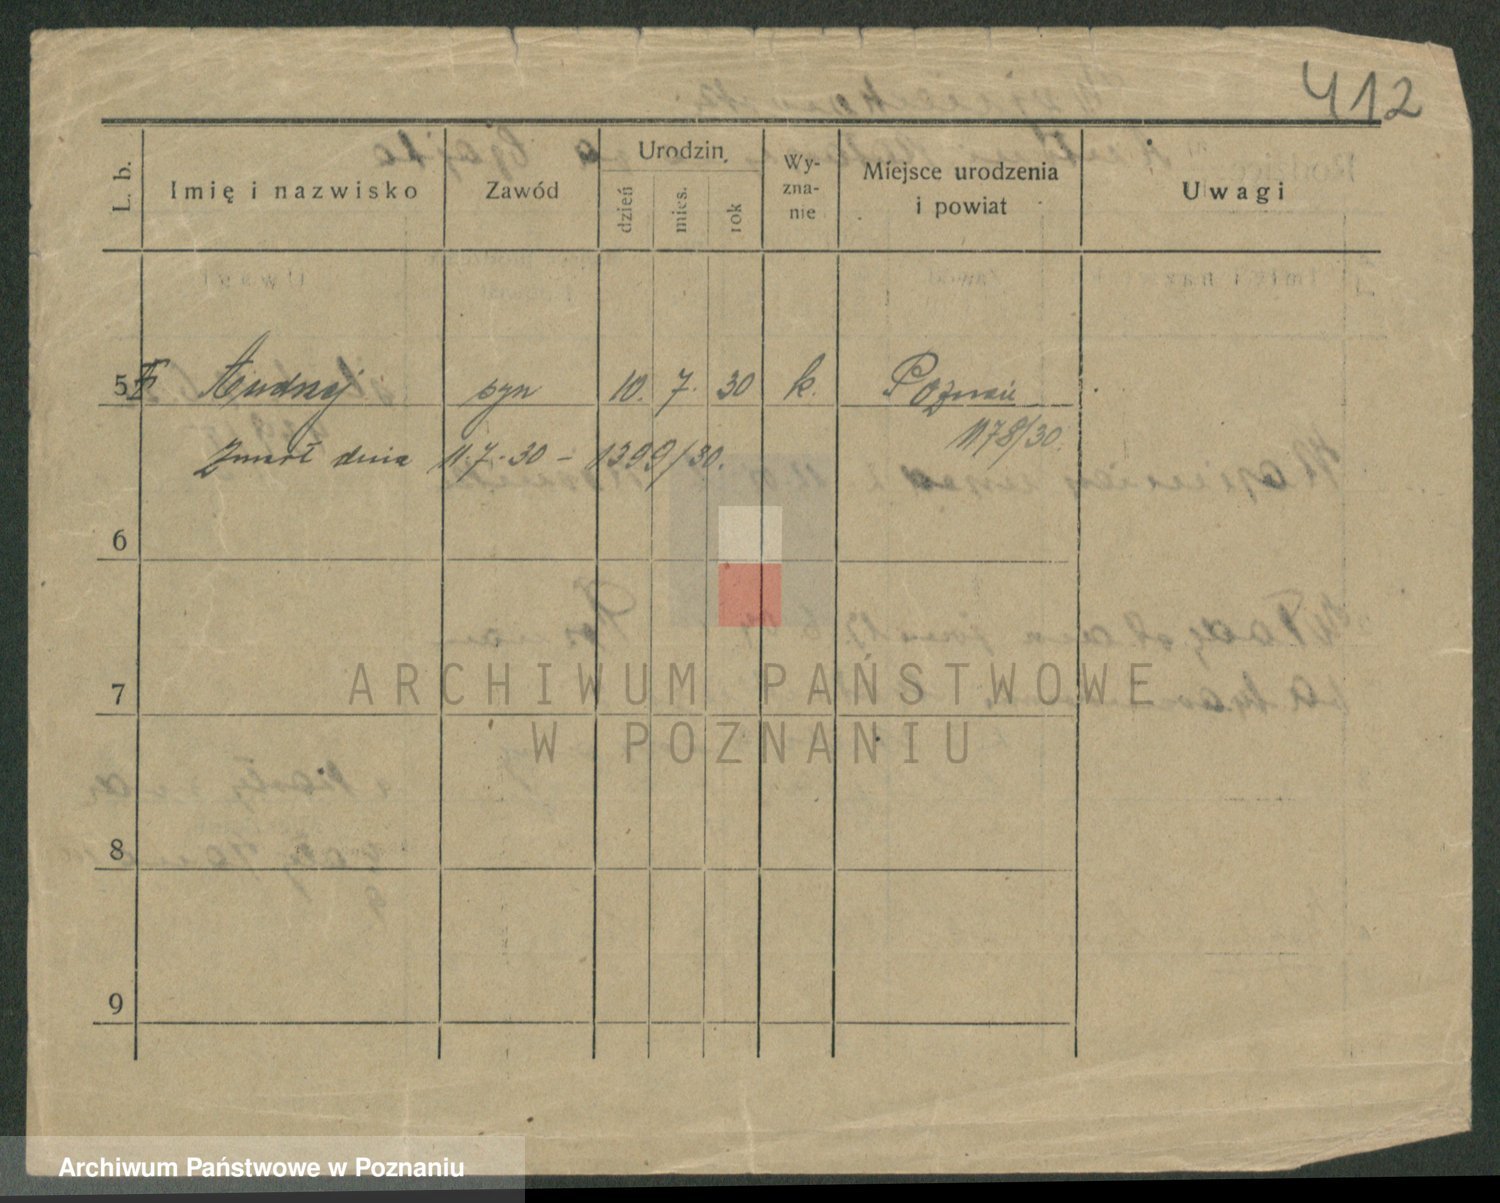 412
L. b. Imię i nazwisko Zawód Urodzin Wy-zna-nie Miejsce urodzenia i powiat Uwagi
dzień mies. rok
5 Andrzej syn 10. 7. 30 k. Poznań
1178/30.
Zmarł dnia 11.7.30 – 1399/30.
6
7
8
9
ARCHIWUM PAŃSTWOWE
W POZNANIU
Archiwum Państwowe w Poznaniu